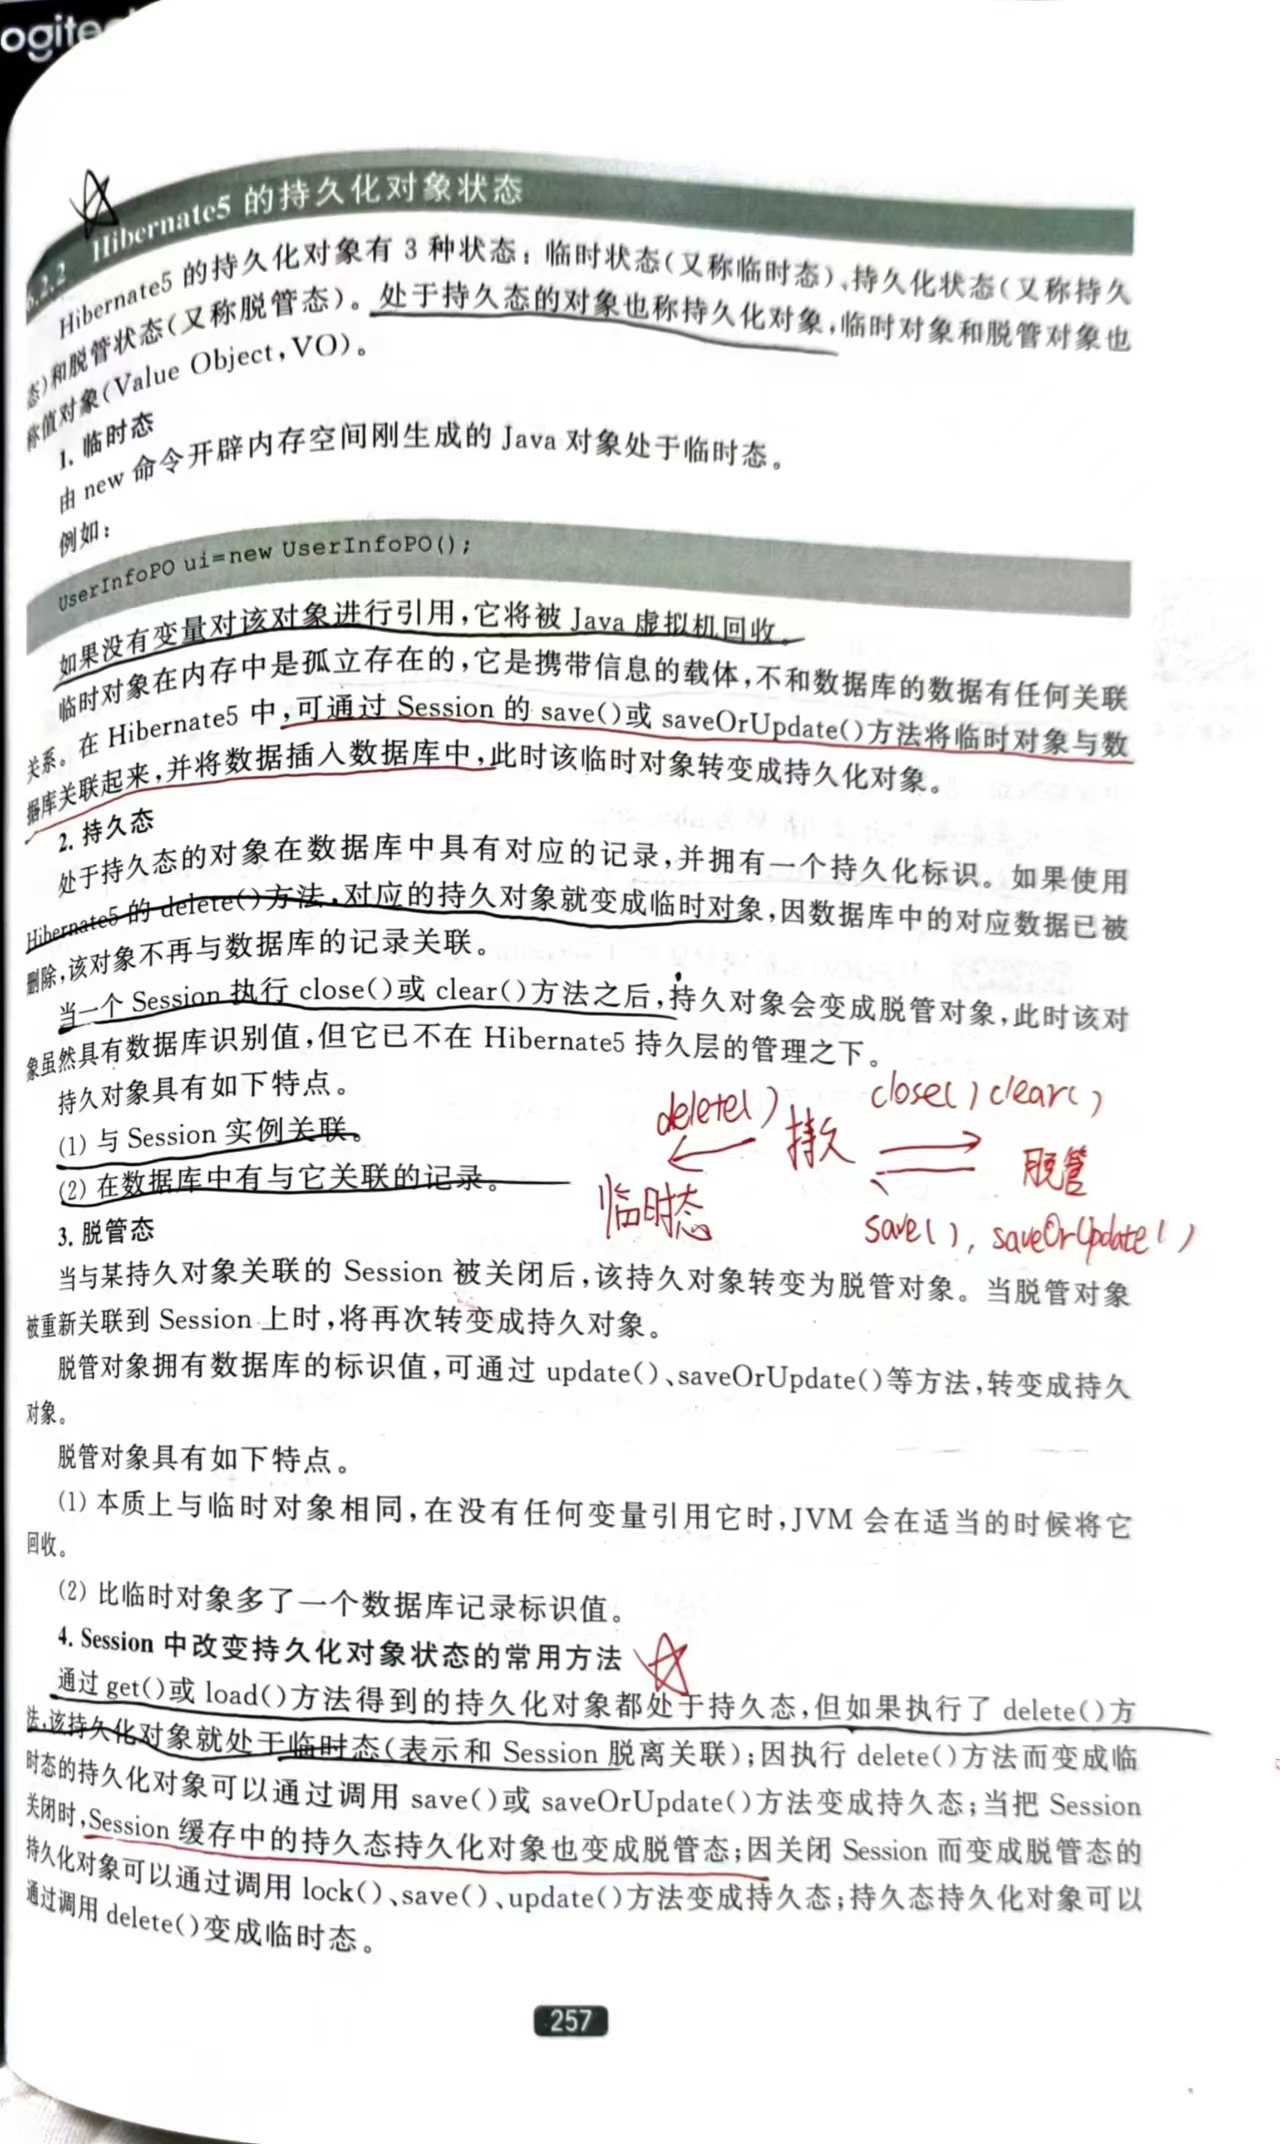 ogite
☆
6.2.2 Hibernate5 的持久化对象状态
Hibernate5 的持久化对象有 3 种状态：临时状态(又称临时态)、持久化状态(又称持久
态)和脱管状态(又称脱管态)。处于持久态的对象也称持久化对象，临时对象和脱管对象也
称值对象(Value Object，VO)。
1. 临时态
由 new 命令开辟内存空间刚生成的 Java 对象处于临时态。
例如：
UserInfoPO ui=new UserInfoPO();
如果没有变量对该对象进行引用，它将被 Java 虚拟机回收。
临时对象在内存中是孤立存在的，它是携带信息的载体，不和数据库的数据有任何关联
关系。在 Hibernate5 中，可通过 Session 的 save()或 saveOrUpdate()方法将临时对象与数
据库关联起来，并将数据插入数据库中，此时该临时对象转变成持久化对象。
2. 持久态
处于持久态的对象在数据库中具有对应的记录，并拥有一个持久化标识。如果使用
Hibernate5 的 delete()方法，对应的持久对象就变成临时对象，因数据库中的对应数据已被
删除，该对象不再与数据库的记录关联。
当一个 Session 执行 close()或 clear()方法之后，持久对象会变成脱管对象，此时该对
象虽然具有数据库识别值，但它已不在 Hibernate5 持久层的管理之下。
持久对象具有如下特点。
(1) 与 Session 实例关联。
(2) 在数据库中有与它关联的记录。
delete() 持久 close() clear()
临时态 脱管
save(), saveOrUpdate()
3. 脱管态
当与某持久对象关联的 Session 被关闭后，该持久对象转变为脱管对象。当脱管对象
被重新关联到 Session 上时，将再次转变成持久对象。
脱管对象拥有数据库的标识值，可通过 update()、saveOrUpdate()等方法，转变成持久
对象。
脱管对象具有如下特点。
(1) 本质上与临时对象相同，在没有任何变量引用它时，JVM 会在适当的时候将它
回收。
(2) 比临时对象多了一个数据库记录标识值。
4. Session 中改变持久化对象状态的常用方法 ☆
通过 get()或 load()方法得到的持久化对象都处于持久态，但如果执行了 delete()方
法，该持久化对象就处于临时态(表示和 Session 脱离关联)；因执行 delete()方法而变成临
时态的持久化对象可以通过调用 save()或 saveOrUpdate()方法变成持久态；当把 Session
关闭时，Session 缓存中的持久态持久化对象也变成脱管态；因关闭 Session 而变成脱管态的
持久化对象可以通过调用 lock()、save()、update()方法变成持久态；持久态持久化对象可以
通过调用 delete()变成临时态。
257